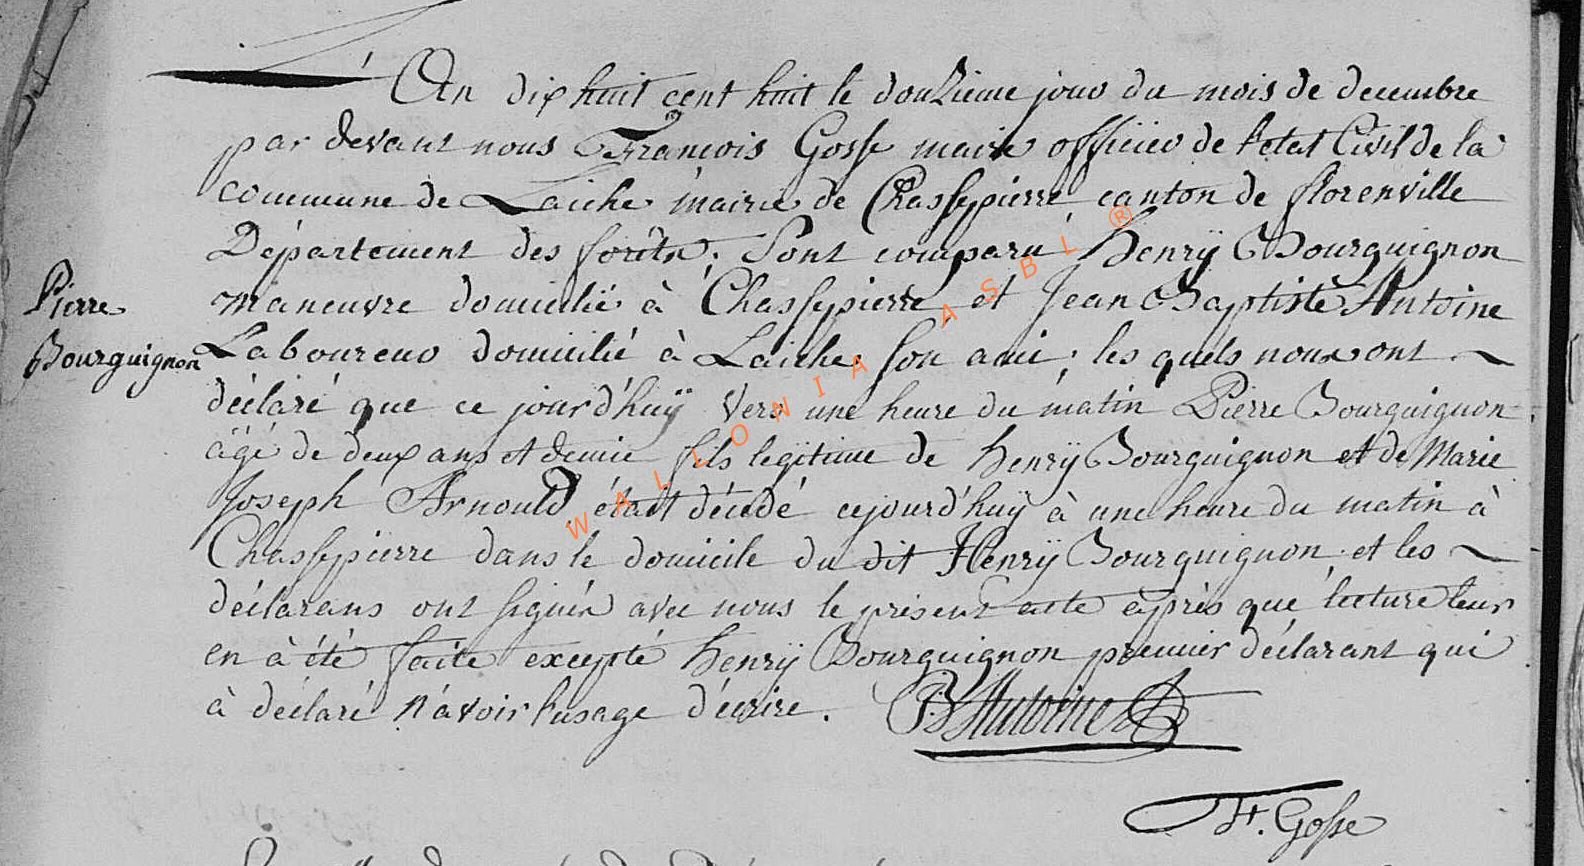 L'An dix huit cent huit le douzieme jour du mois de decembre
par devant nous François Gosse maire officier de l'etat Civil de la
commune de Laiche mairie de Chassepierre canton de florenville
Département des forêts, Sont comparu Henrÿ Bourguignon
maneuvre domicilié à Chassepierre et Jean Baptiste Antoine
Laboureur domicilié à Laiche son ami, les quels nous ont
Pierre
Bourguignon
déclaré que ce jourd'huÿ vers une heure du matin Pierre Bourguignon
âgé de deux ans et demie fils legitime de henrÿ Bourguignon et de Marie
Joseph Arnould était décédé cejourd'huÿ à une heure du matin à
Chassepierre dans le domicile du dit Henrÿ Bourguignon et les
déclarans ont signés avec nous le présent acte après que lecture leur
en à été faite excepté henrÿ Bourguignon premier déclarant qui
à déclaré n'avoir l'usage d'écrire. JB Antoine
Fr. Gosse
WALLONIA ASBL ®